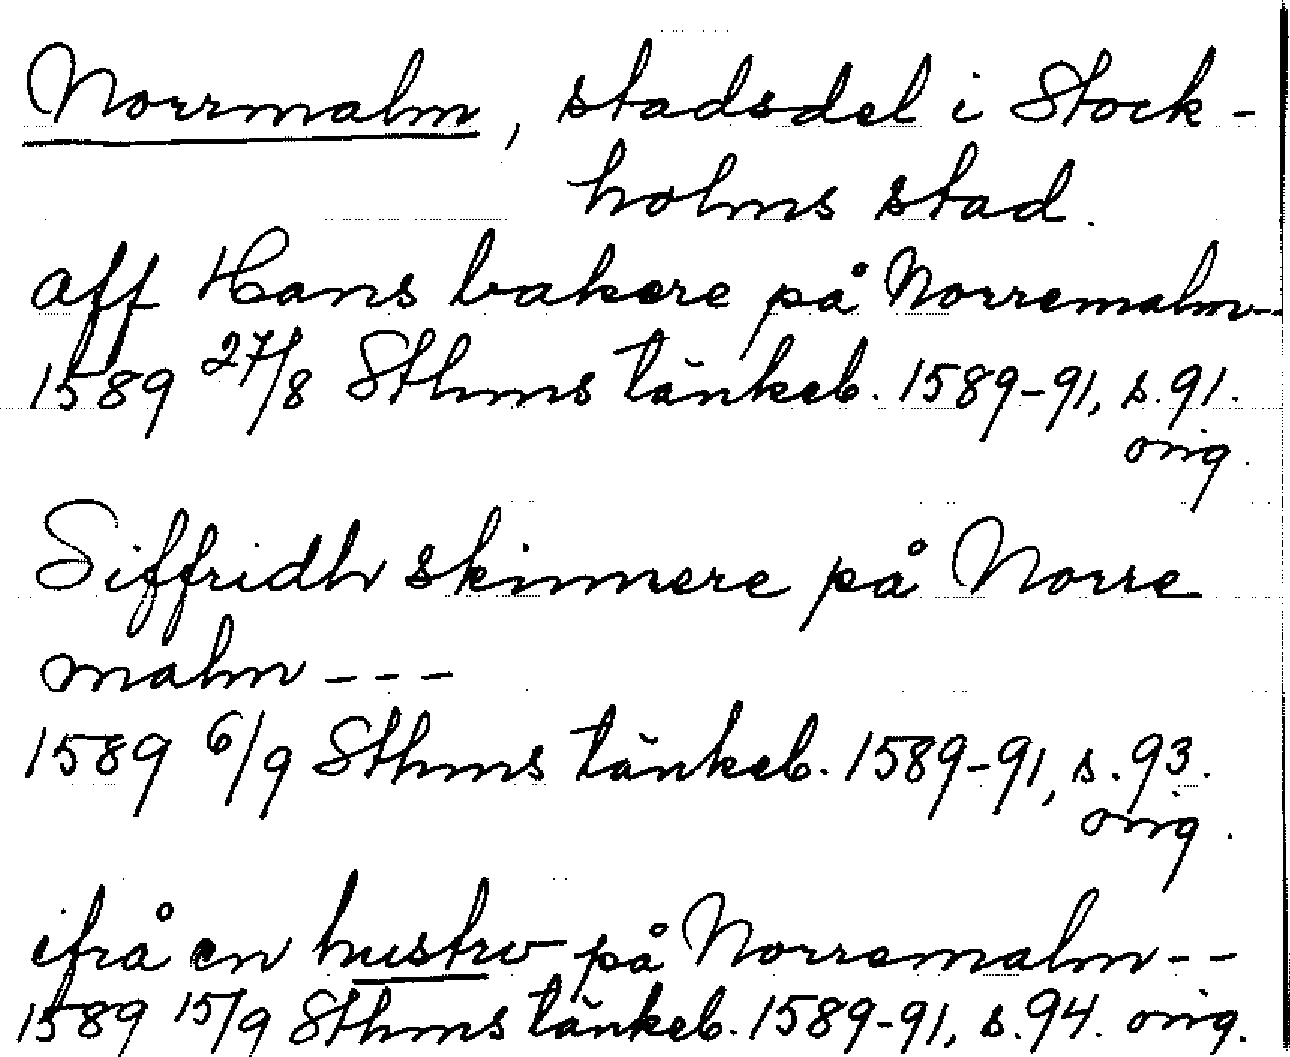 Norrmalm, stadsdel i Stock-
holms stad.
aff Hans bakere på Norremalm--
1589 27/8 Sthms tänkeb. 1589-91, s. 91.
orig.
Siffridh skinnere på Norre
malm ---
1589 6/9 Sthms tänkeb. 1589-91, s. 93.
orig.
ifrå en hustro på Norremalm--
1589 15/9 Sthms tänkeb. 1589-91, s. 94. orig.